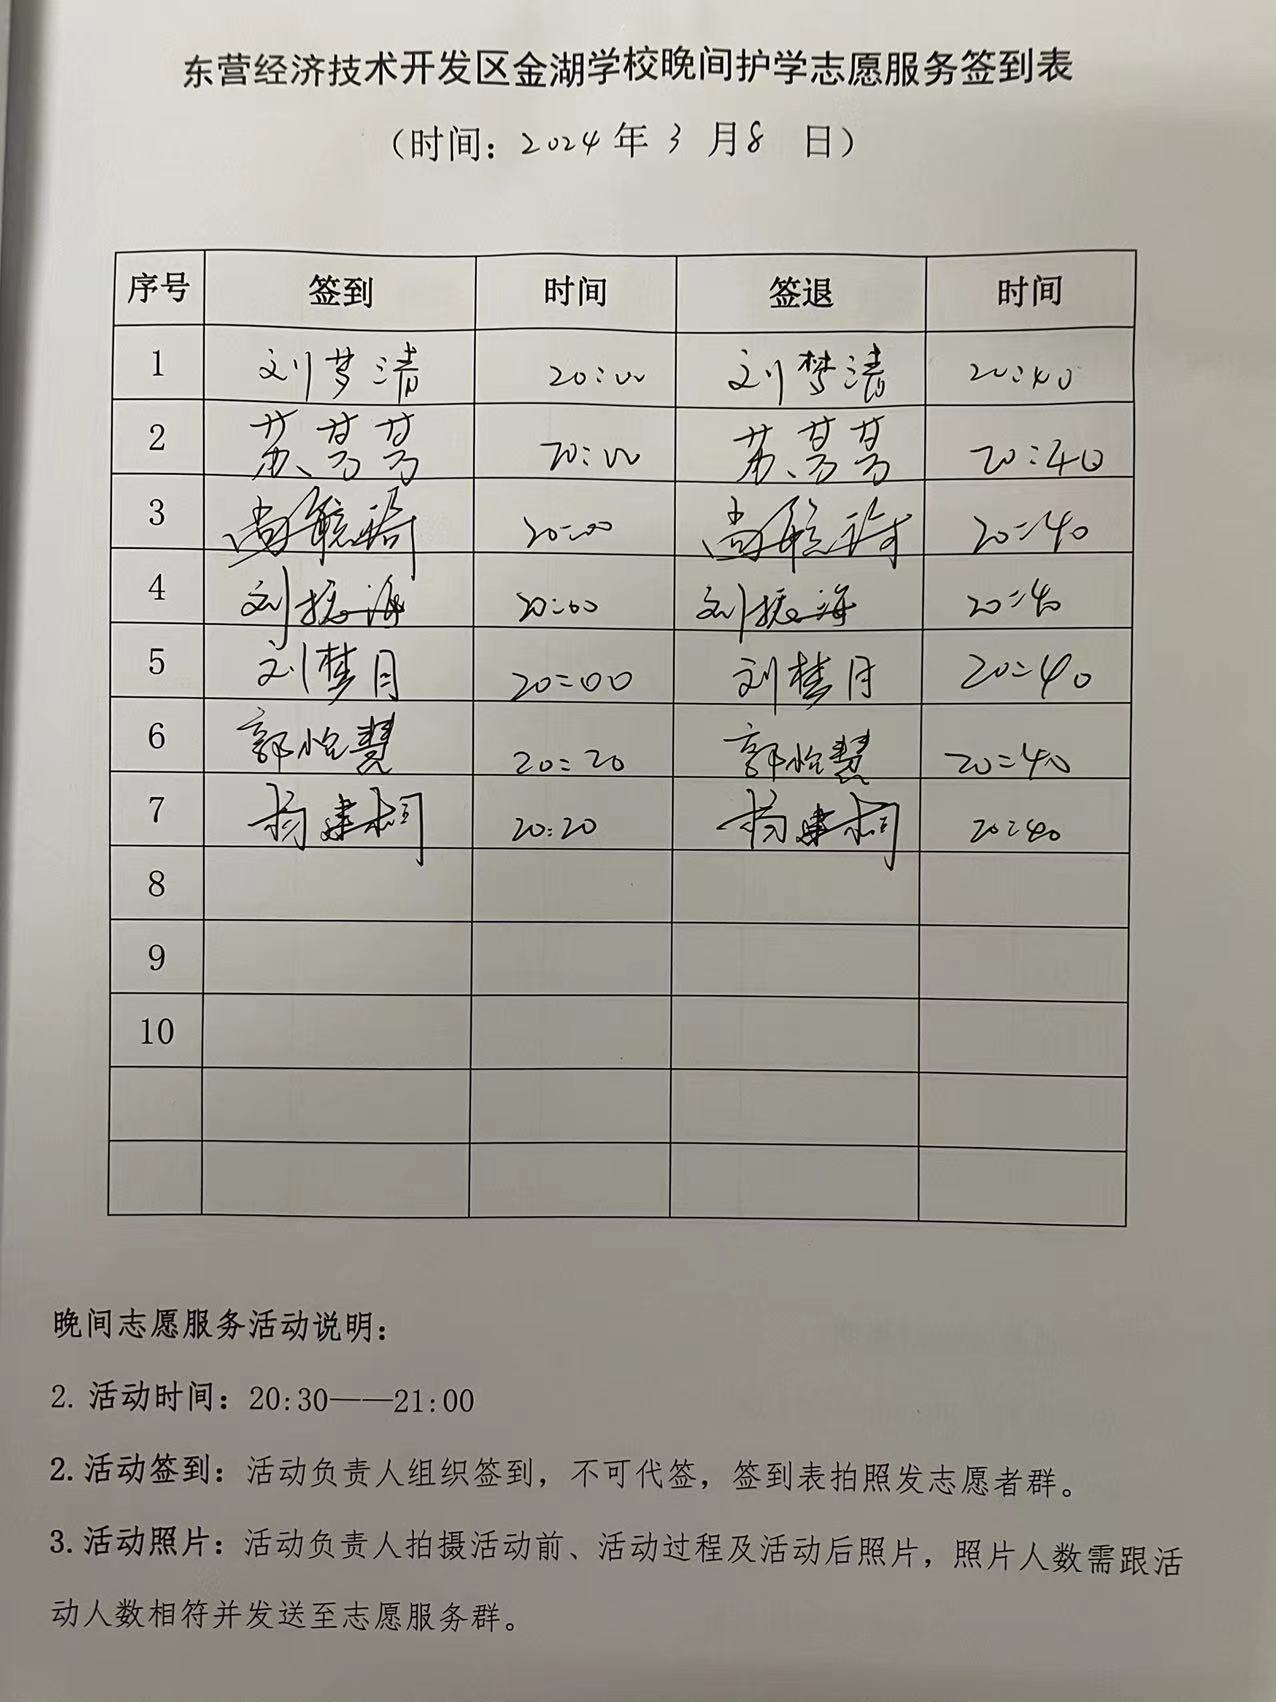 东营经济技术开发区金湖学校晚间护学志愿服务签到表
（时间：2024年 3 月8 日）
序号 签到 时间 签退 时间
1 刘梦清 20:00 刘梦清 20:40
2 苏萼萼 20:00 苏萼萼 20:40
3 尚毓 20:00 尚毓 20:40
4 刘振海 20:00 刘振海 20:40
5 刘梦月 20:00 刘梦月 20:40
6 郭怡慧 20:20 郭怡慧 20:40
7 杨建桐 20:20 杨建桐 20:40
8
9
10
晚间志愿服务活动说明：
2. 活动时间：20:30——21:00
2. 活动签到：活动负责人组织签到，不可代签，签到表拍照发志愿者群。
3. 活动照片：活动负责人拍摄活动前、活动过程及活动后照片，照片人数需跟活
动人数相符并发送至志愿服务群。